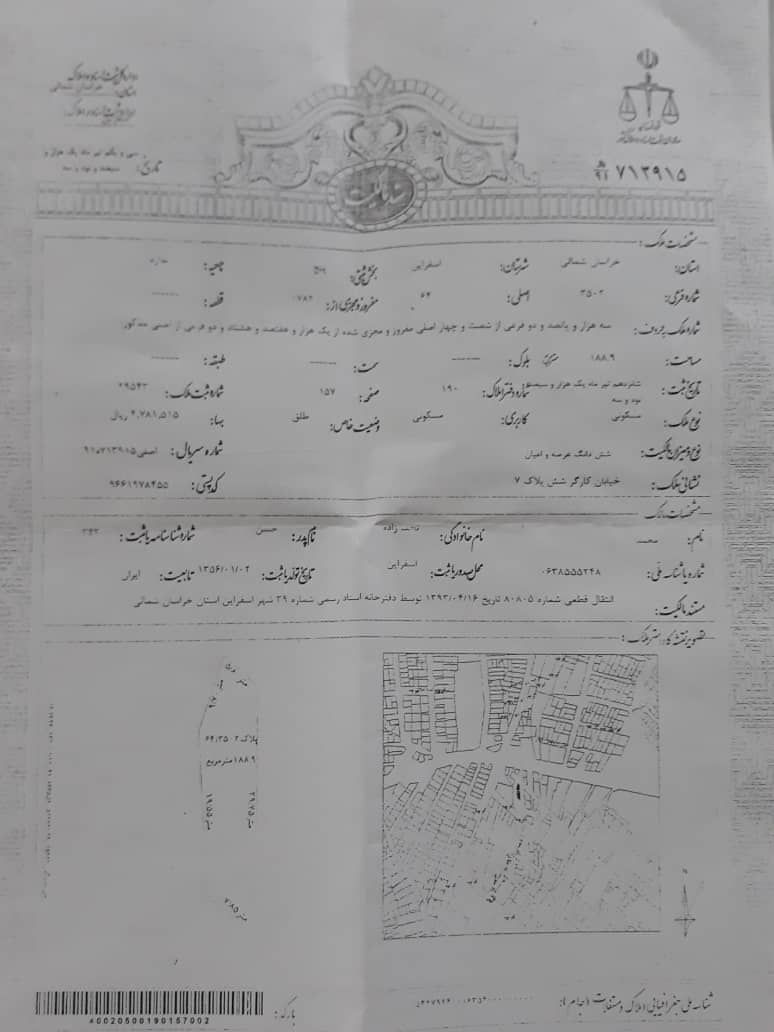 اداره کل ثبت اسناد و املاک
استان: خراسان شمالی
۷۱۳۹۱۵ ۹۱
تاریخ: سی و یکم تیر ماه یک هزار و سیصد و نود و سه
سند مالکیت
مشخصات ملک:
استان: خراسان شمالی شهرستان: اسفراین بخش ثبتی: ناحیه:
شماره فرعی: ۳۵۰۲ اصلی: ۶۴ مفروز و مجزی از: ۱۷۸۲ قطعه: ------
شماره ملک به حروف: سه هزار و پانصد و دو فرعی از شصت و چهار اصلی مفروز و مجزی شده از یک هزار و هفتصد و هشتاد و دو فرعی از اصلی مذکور
مساحت: ۱۸۸.۹ مترمربع بلوک: ------ سمت: ------ طبقه: ------
تاریخ ثبت: شانزدهم تیر ماه یک هزار و سیصد و نود و سه شماره دفتر املاک: ۱۹۰ صفحه: ۱۵۷ شماره ثبت ملک: ۲۹۵۴۳
نوع ملک: مسکونی کاربری: مسکونی وضعیت خاص: طلق بها: ۴,۷۸۱,۵۱۵ ریال
نوع و میزان مالکیت: شش دانگ عرصه و اعیان شماره سریال: اصلی ۹۱۵۷۱۳۹۱۵
نشانی ملک: خیابان کارگر شش پلاک ۷ کد پستی: ۹۶۶۱۹۷۸۴۵۵
مشخصات مالک:
نام: محمد نام خانوادگی: زاده نام پدر: حسن شماره شناسنامه یا ثبت: ۳۴۳
شماره یا شناسه ملی: ۰۶۳۸۵۵۵۲۴۸ محل صدور یا ثبت: اسفراین تاریخ تولد یا ثبت: ۱۳۵۶/۰۱/۰۲ تابعیت: ایران
مستند مالکیت: انتقال قطعی شماره ۸۰۸۰۵ تاریخ ۱۳۹۳/۰۴/۱۶ توسط دفترخانه اسناد رسمی شماره ۳۹ شهر اسفراین استان خراسان شمالی
تصویر نقشه کاداستر ملک:
پلاک ۶۴/۳۵۰۲
۱۸۸.۹ مترمربع
۱۹.۵۵ متر
۲۹.۷۵ متر
۷.۸۵ متر
شناسه ملی جغرافیایی املاک و مستغلات (جام):
بارکد:
40020500190157002